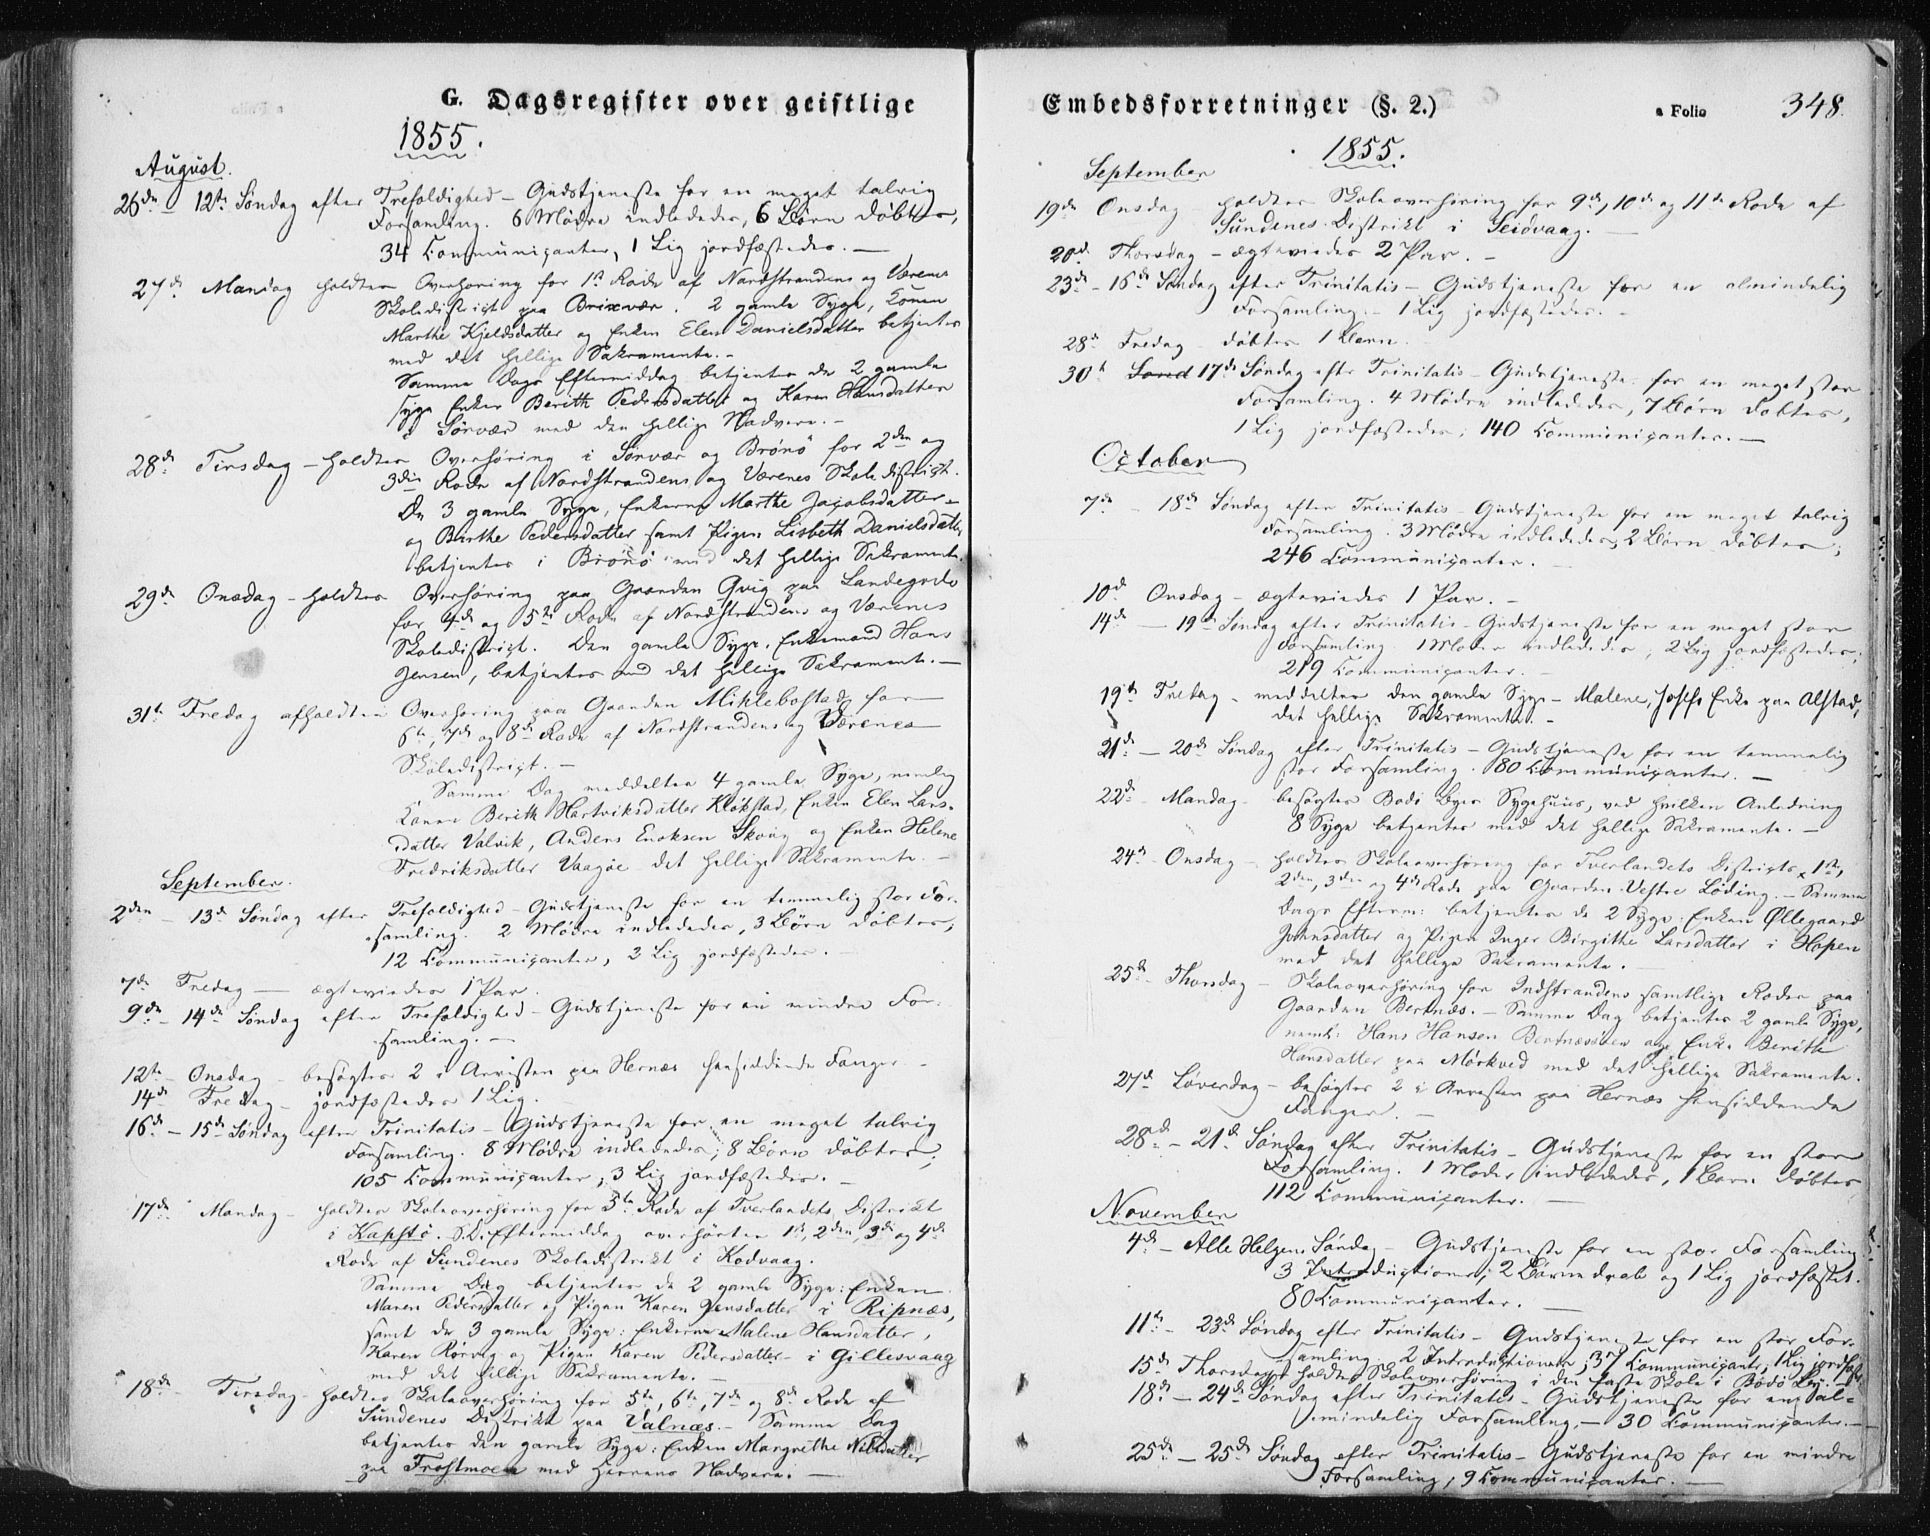 G. Dagsregister over geistlige
1855.
August.
26de – 12te Søndag efter Trefoldighed – Gudstjeneste for en meget talrig
Forsamling. 6 Mødre indlededes, 6 Børn døbtes,
34 Communicanter, 1 Lig jordfæstedes. –
27de Mandag holdtes Overhøring for 1ste Rode af Nordstrandens og Værenes
Skoledistrict paa Brixvær. 2 gamle Syge, Konen
Marthe Kjeldsdatter og Enken Elen Danielsdatter betjentes
med det hellige Sakramente. –
Samme Dags Eftermiddag betjentes de 2 gamle
syge Enker Berith Pedersdatter og Karen Hansdatter
i Sørvær med den hellige Nadvere. –
28de Tirsdag – holdtes Overhøring i Sørvær og Brønø for 2den og
3die Rode af Nordstrandens og Værenes Skoledistrict.
De 3 gamle Syge, Enkerne Marthe Jacobsdatter –
og Birthe Pedersdatter samt Pigen Lisbeth Danielsdatter,
betjentes i Brønø med det hellige Sakramente.
29de Onsdag – holdtes Overhøring paa Gaarden Qvig paa Landegode
for 4de og 5te Rode af Nordstrandens og Værenes
Skoledistrict. Den gamle Syge, Enkemand Hans
Jensen, betjentes med det hellige Sakramente. –
31te Fredag afholdtes Overhøring paa Gaarden Miklebostad for
6te, 7de og 8de Rode af Nordstrandens og Værenes
Skoledistrict. –
Samme Dag meddeltes 4 gamle Syge, nemlig
Konen Berith Hartviksdatter Kløkstad, Enken Elen Lars-
datter Valvik, Anders Enoksen Skoug og Enken Helene
Fredriksdatter Vaagøe det hellige Sakramente. –
September.
2den – 13de Søndag efter Trefoldighed – Gudstjeneste for en temmelig stor For-
samling. 2 Mødre indlededes, 3 Børn døbtes,
12 Communicanter, 2 Lig jordfæstedes. –
7de Fredag – ægteviedes 1 Par.
9de – 14de Søndag efter Trefoldighed – Gudstjeneste for en mindre For-
samling. –
12te Onsdag – besøgtes 2 i Arresten paa Hernæs hensiddende Fanger –
14de Fredag – jordfæstedes 1 Lig.
16de – 15de Søndag efter Trinitatis – Gudstjeneste for en meget talrig
Forsamling. 8 Mødre indlededes; 8 Børn døbtes;
105 Communicanter, 3 Lig jordfæstedes. –
17de Mandag – holdtes Skoleoverhøring for 5te Rode af Tverlandets Distrikt
i Kapstø. S.D. Eftermiddag overhørtes 1ste, 2den, 3die og 4de
Rode af Sundenes Skoledistrikt i Kodvaag.
Samme Dag betjentes de 2 gamle Syge: Enken
Maren Pedersdatter og Pigen Karen Jensdatter i Ripnæs,
samt de 3 gamle Syge: Enkerne Malene Hansdatter,
Karen Rørvig og Pigen Karen Pedersdatter – i Gillesvaag
med det hellige Sakramente. –
18de Tirsdag – holdtes Skoleoverhøring for 5te, 6te, 7de og 8de Rode af
Sundenes Distrikt paa Valnæs. – Samme Dag
betjentes den gamle Syge: Enken Margrethe Nilsdatter
paa Frostmoen med Herrens Nadvere. –
Embedsforretninger (§. 2.)
a Folio 348.
1855.
September
19de Onsdag holdtes Skoleoverhøring for 9de, 10de og 11te Rode af
Sundenes Distrikt i Seiøvaag. –
20de Thorsdag – ægteviedes 2 Par. –
23de – 16de Søndag efter Trinitatis – Gudstjeneste for en almindelig
Forsamling. – 1 Lig jordfæstedes. –
28de Fredag – døbtes 1 Barn.
30te Sønd 17de Søndag efter Trinitatis – Gudstjeneste for en meget stor
Forsamling. 4 Mødre indlededes, 7 Børn døbtes,
1 Lig jordfæstedes, 140 Communicanter. –
October
7de – 18de Søndag efter Trinitatis – Gudstjeneste for en meget talrig
Forsamling. 3 Mødre indlededes, 2 Børn døbtes;
246 Communicanter. –
10de Onsdag – ægteviedes 1 Par. –
14de – 19de Søndag efter Trinitatis – Gudstjeneste for en meget stor
Forsamling. 1 Moder indlededes, 2 Lig jordfæstedes;
219 Communicanter. –
19de Fredag – meddeltes den gamle Syge – Malene, Josefs Enke paa Alstad,
det hellige Sakramente. –
21de – 20de Søndag efter Trinitatis – Gudstjeneste for en temmelig
stor Forsamling. 80 Communicanter. –
22de – Mandag – besøgtes Bodø Byes Sygehuus, ved hvilken Anledning
8 Syge betjentes med det hellige Sakramente. –
24de – Onsdag – holdtes Skoleoverhøring for Tverlandets Districts 1ste,
2den, 3die og 4de Rode paa Gaarden Vestre Løding. – Samme
Dags Efterm: betjentes de 2 Syge: Enken Øllegaard
Johnsdatter og Pigen Inger Birgithe Larsdatter i Hopen
med det hellige Sakramente. –
25de – Thorsdag – Skoleoverhøring for Indstrandens samtlige Roder paa
Gaarden Bertnæs. – Samme Dag betjentes 2 gamle Syge,
neml: Hans Hansen Bertnæsøien og Enke Berith
Hansdatter paa Mørkved med det hellige Sakramente.
27de Løverdag – besøgtes 2 i Arresten paa Hernæs hensiddende
Fanger. –
28de – 21de Søndag efter Trinitatis – Gudstjeneste for en stor
Forsamling. 1 Moder indlededes, 1 Barn døbtes
112 Communicanter. –
November
4de – Alle Helgens Søndag – Gudstjeneste for en stor Forsamling
3 Introductioner, 2 Børnedaab og 1 Lig jordfæstet.
80 Communicanter. –
11te – 23de Søndag efter Trinitatis – Gudstjeneste for en stor For-
samling 2 Introductioner; 37 Communicanter, 1 Lig jordfæst
15de Thorsdag holdtes Skoleoverhøring i den faste Skole i Bodø By. –
18de – 24de Søndag efter Trinitatis – Gudstjeneste for en al-
mindelig Forsamling, – 30 Communicanter. –
25de – 25de Søndag efter Trinitatis – Gudstjeneste for en mindre
Forsamling, 9 Communicanter. –